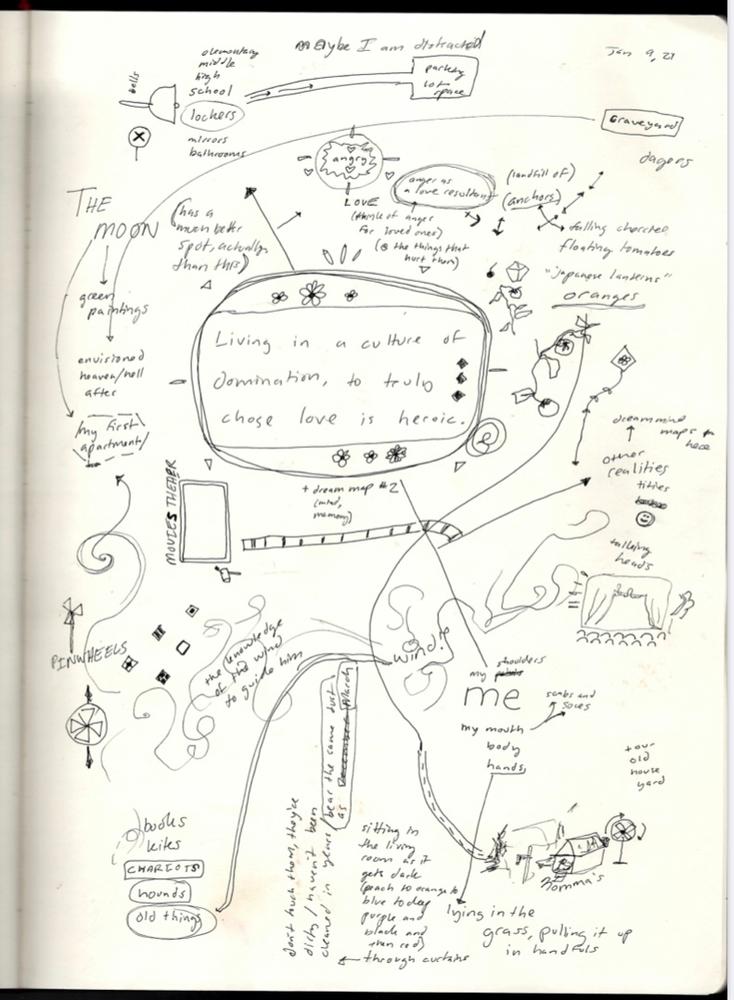 maybe I am distracted
Jan 9, 21
elementary
middle
high
school
lockers
mirrors
bathrooms
bells
parking
lot
space
Graveyard
dagers
angry
LOVE
(think of anger
for loved ones)
(@ the things that
hurt them)
anger as
a love resultant
(landfill of)
(anchors)
falling charcoal
floating tomatoes
"japanese lanterns"
oranges
THE
MOON
(has a
much better
spot, actually,
than this)
green
paintings
envisioned
heaven/hell
after
/my first
apartment/
Living in a culture of
domination, to truly
chose love is heroic.
+ dream map #2
(mind,
memory)
MOVIES THEATER
dream mind
maps
here
other
realities
titties
talking
heads
PINWHEELS
the knowledge
of the wind
to guide him
wind!?
my shoulders
me
scabs and
sores
my mouth
body
hands,
our
old
house
yard
books
kites
CHARIOTS
hounds
old things
don't touch them, they're
dirty / haven't been
cleaned in years / bear the same dust
as December March
sitting in
the living
room as it
gets dark
(peach to orange to
blue to deep
purple and
black and
then red)
through curtains
Momma's
lying in the
grass, pulling it up
in handfuls